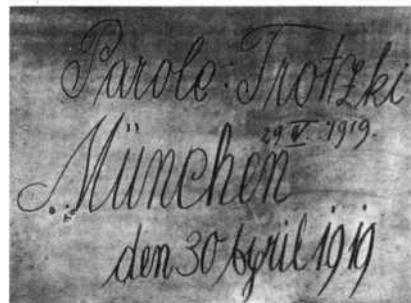 Parole: Trotzki
29 IV. 1919.
München
den 30 April 1919